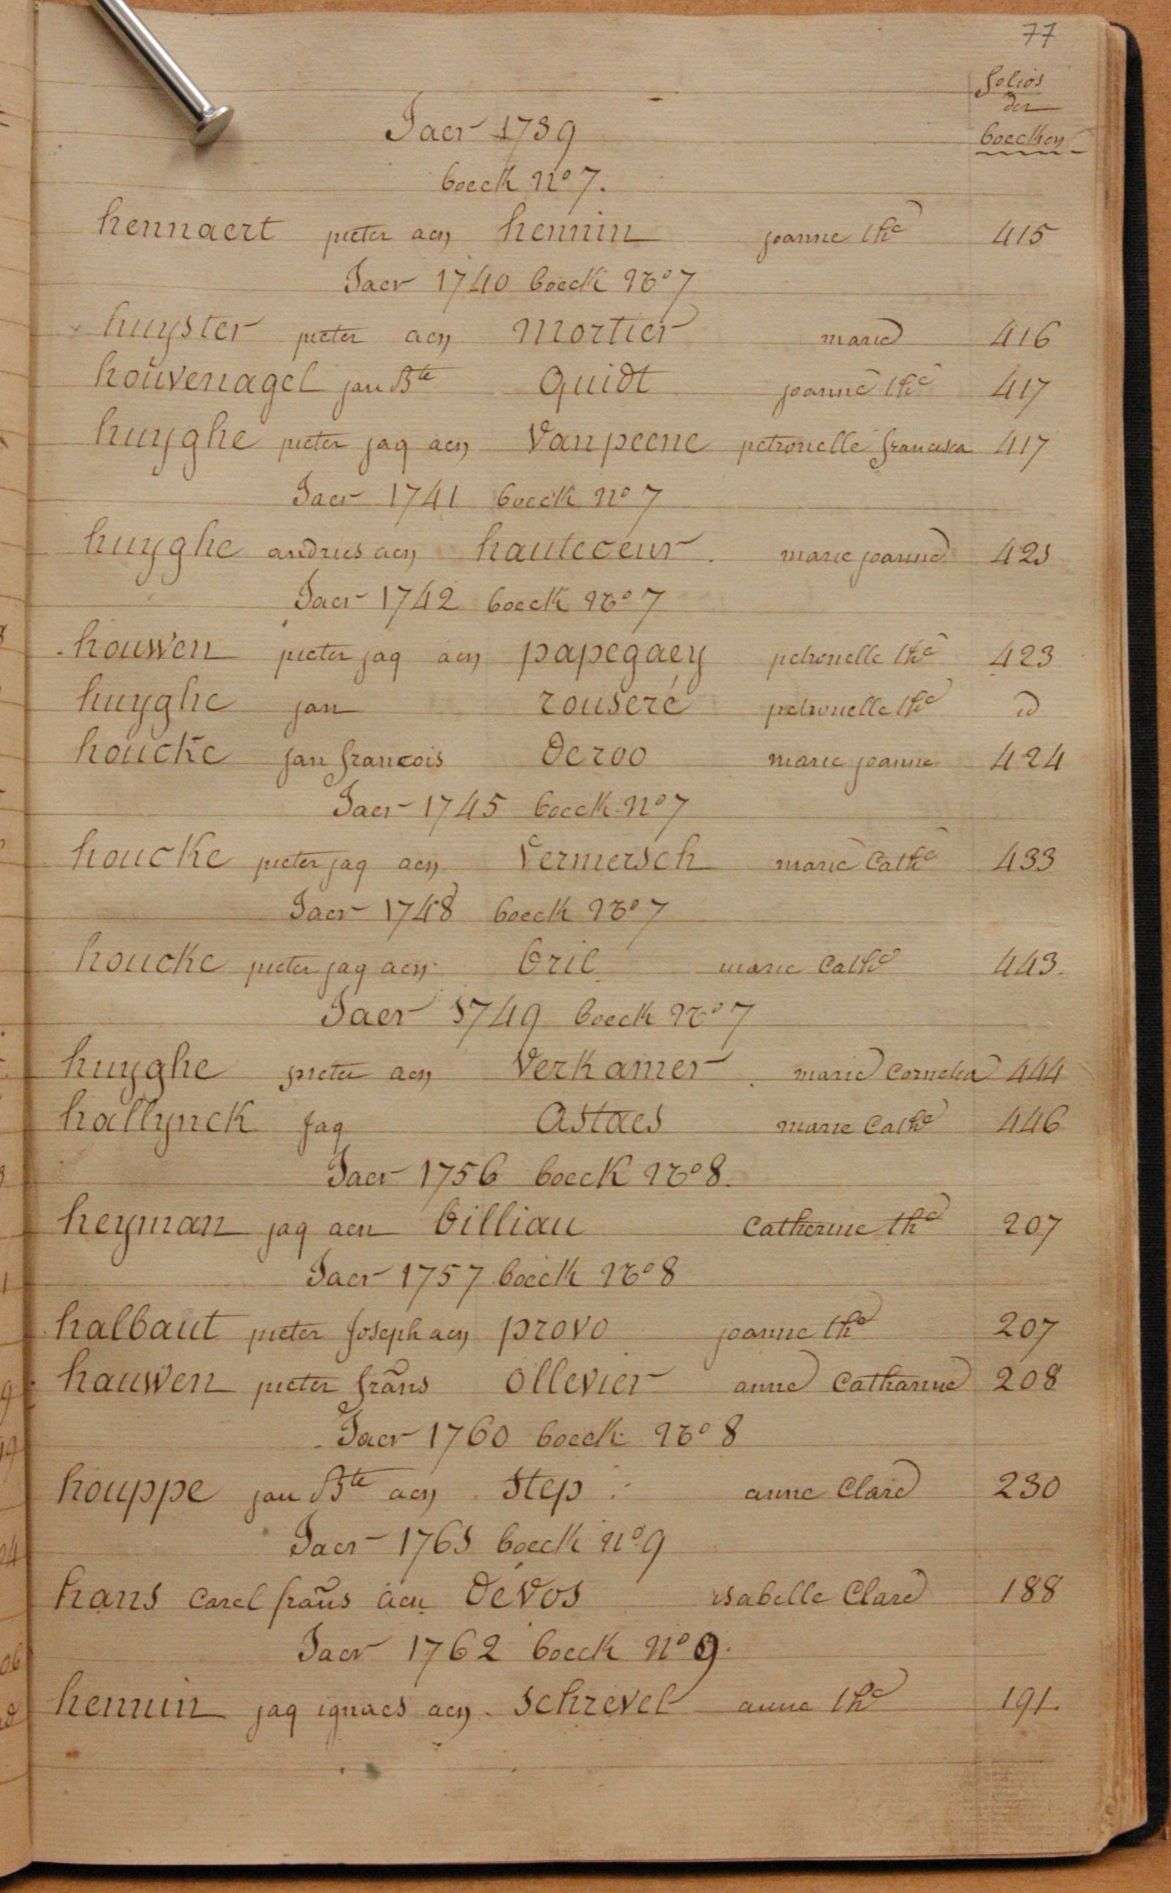 77
folios
der
boecken
Jaer 1739
boeck No 7.
hennaert pieter aen hennin joanne the 415
Jaer 1740 boeck No 7
huyster pieter aen Mortier marie 416
houvenagel jan Bte Quidt joanne the 417
huyghe pieter jaq aen Vanpeene petronelle francisca 417
Jaer 1741 boeck No 7
huyghe andries aen hautecoeur marie joanne 421
Jaer 1742 boeck No 7
houwen pieter jaq aen papegaey petronelle the 423
huyghe jan rouseré petronelle the id
houcke jan francois Deroo marie joanne 424
Jaer 1745 boeck No 7
houcke pieter jaq aen Vermersch marie Cathe 433
Jaer 1748 boeck No 7
houcke pieter jaq aen bril marie Cathe 443.
Jaer 1749 boeck No 7
huyghe pieter aen Verkamer marie Cornelia 444
hallynck Jaq Astaes marie Cathe 446
Jaer 1756 boeck No 8.
heyman jaq aen billiau Catherine the 207
Jaer 1757 boeck No 8
halbaut pieter Joseph aen provo joanne the 207
hauwen pieter frans ollevier anne Catharine 208
Jaer 1760 boeck No 8
houppe jan Bte aen Step anne Clare 230
Jaer 1761 boeck No 9
hans Carel frans aen Devos isabelle Clare 188
Jaer 1762 boeck No 9.
hennin jaq ignaes aen Schrevel anne the 191.